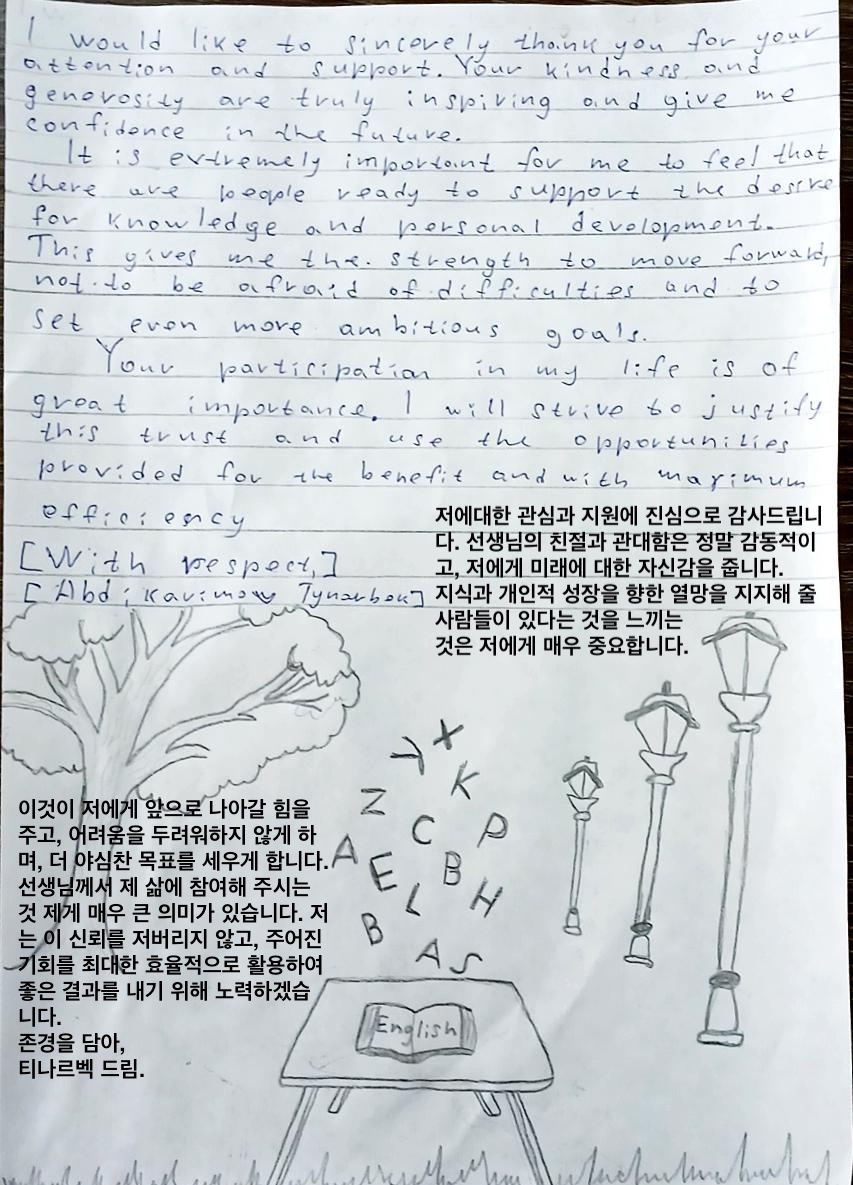 I would like to sincerely thank you for your
attention and support. Your kindness and
generosity are truly inspiring and give me
confidence in the future.
It is extremely important for me to feel that
there are people ready to support the desire
for knowledge and personal development.
This gives me the strength to move forward,
not to be afraid of difficulties and to
set even more ambitious goals.
Your participation in my life is of
great importance. I will strive to justify
this trust and use the opportunities
provided for the benefit and with maximum
efficiency
[With respect,]
저에대한 관심과 지원에 진심으로 감사드립니
다. 선생님의 친절과 관대함은 정말 감동적이
고, 저에게 미래에 대한 자신감을 줍니다.
지식과 개인적 성장을 향한 열망을 지지해 줄
사람들이 있다는 것을 느끼는
것은 저에게 매우 중요합니다.
이것이 저에게 앞으로 나아갈 힘을
주고, 어려움을 두려워하지 않게 하
며, 더 야심찬 목표를 세우게 합니다.
선생님께서 제 삶에 참여해 주시는
것 제게 매우 큰 의미가 있습니다. 저
는 이 신뢰를 저버리지 않고, 주어진
기회를 최대한 효율적으로 활용하여
좋은 결과를 내기 위해 노력하겠습
니다.
존경을 담아,
티나르벡 드림.
Y X
Z K
C P
A E B
L H
B
A S
English